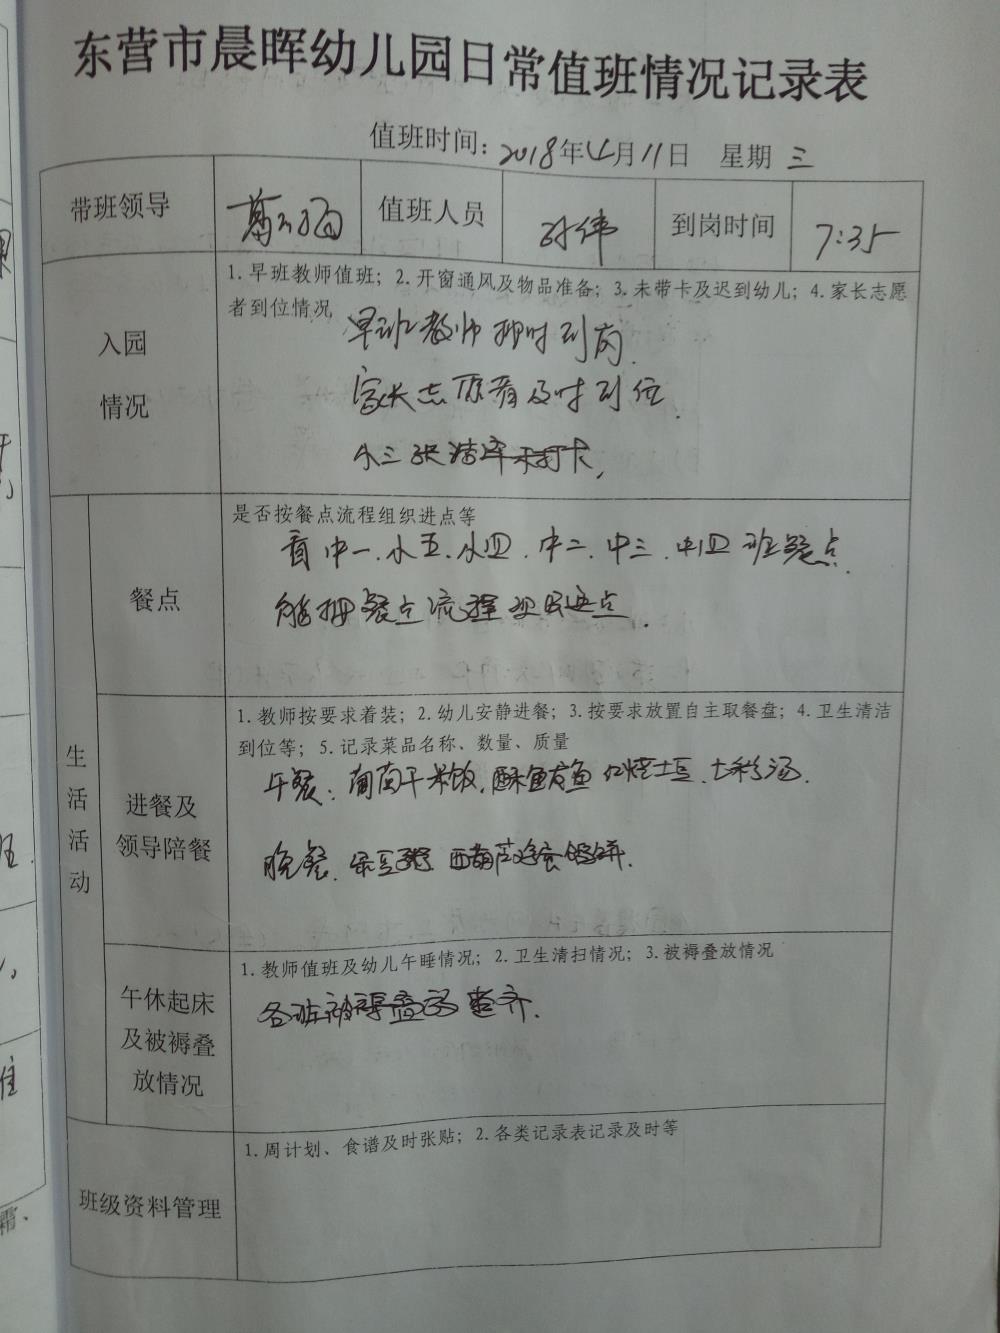 东营市晨晖幼儿园日常值班情况记录表
值班时间：2018年4月11日 星期三
带班领导 值班人员 孙伟 到岗时间 7:35
入园情况
1. 早班教师值班；2. 开窗通风及物品准备；3. 未带卡及迟到幼儿；4. 家长志愿
者到位情况
早班教师按时到岗.
家长志愿者及时到位.
小三张洁泽未打卡,
生活活动
餐点
是否按餐点流程组织进点等
看中一.小五.小四.中二.中三.中四班餐点.
能按餐点流程进点.
进餐及
领导陪餐
1. 教师按要求着装；2. 幼儿安静进餐；3. 按要求放置自主取餐盘；4. 卫生清洁
到位等；5. 记录菜品名称、数量、质量
午餐：葡萄干米饭.酥鲅鱼 红烧土豆.七彩汤.
晚餐.绿豆粥 西葫芦鸡蛋馅饼.
午休起床
及被褥叠
放情况
1. 教师值班及幼儿午睡情况；2. 卫生清扫情况；3. 被褥叠放情况
各班被褥叠放整齐.
班级资料管理
1. 周计划、食谱及时张贴；2. 各类记录表记录及时等